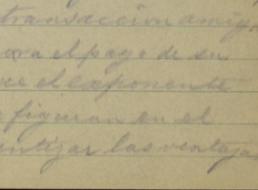 transaccion amig
para el pago de su
que el exponente
figuran en el
antizar las ventajas